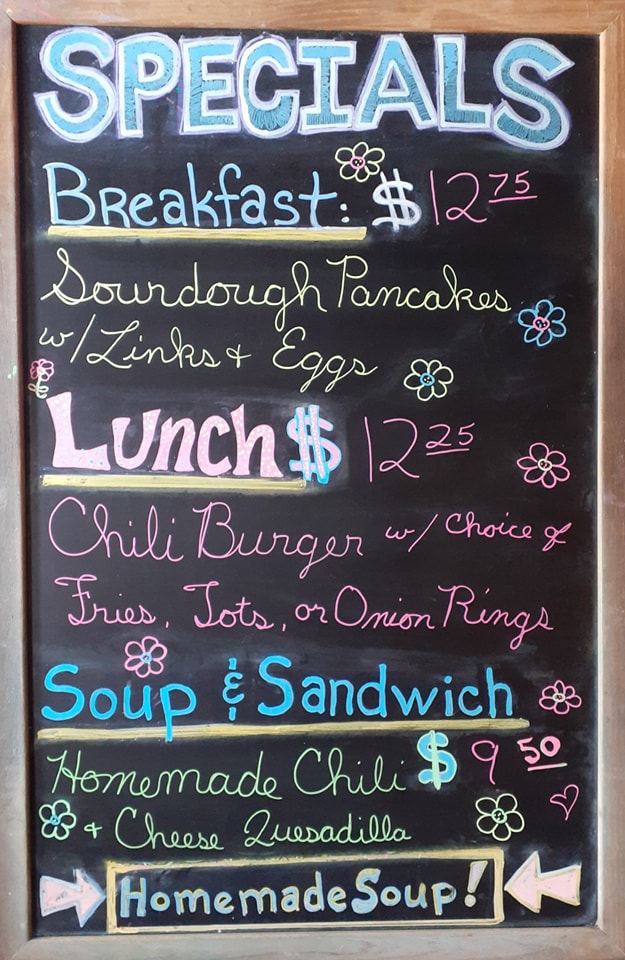 SPECIALS
Breakfast: $12.75
Sourdough Pancakes
w/Links + Eggs
Lunch $12.25
Chili Burger w/ Choice of
Fries, Tots, or Onion Rings
Soup & Sandwich
Homemade Chili $9.50
+ Cheese Quesadilla
Homemade Soup!